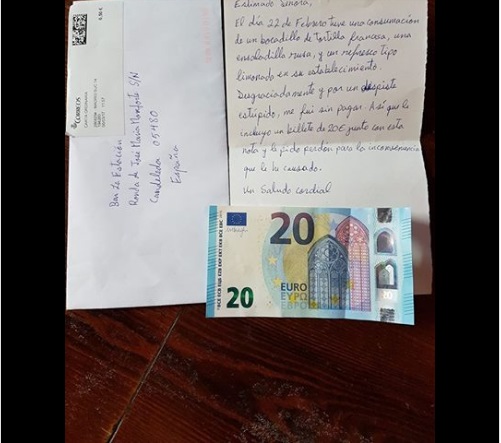 CORREOS
CARTA ORDINARIA
Bar La Estación
Ronda de José María Monforte S/N
Candeleda 05480
España
Estimado Señora,
El día 22 de Febrero tuve una consumación
de un bocadillo de Tortilla francesa, una
ensaladilla rusa, y un refresco tipo
limonada en su establecimiento.
Desgraciadamente y por un despiste
estúpido, me fui sin pagar. Así que le
incluyo un billete de 20€ junto con esta
nota y le pido perdón para la inconveniencia
que le he causado.
Un Saludo cordial
20
20
EURO
ΕΥΡΩ
ЕВРО
20